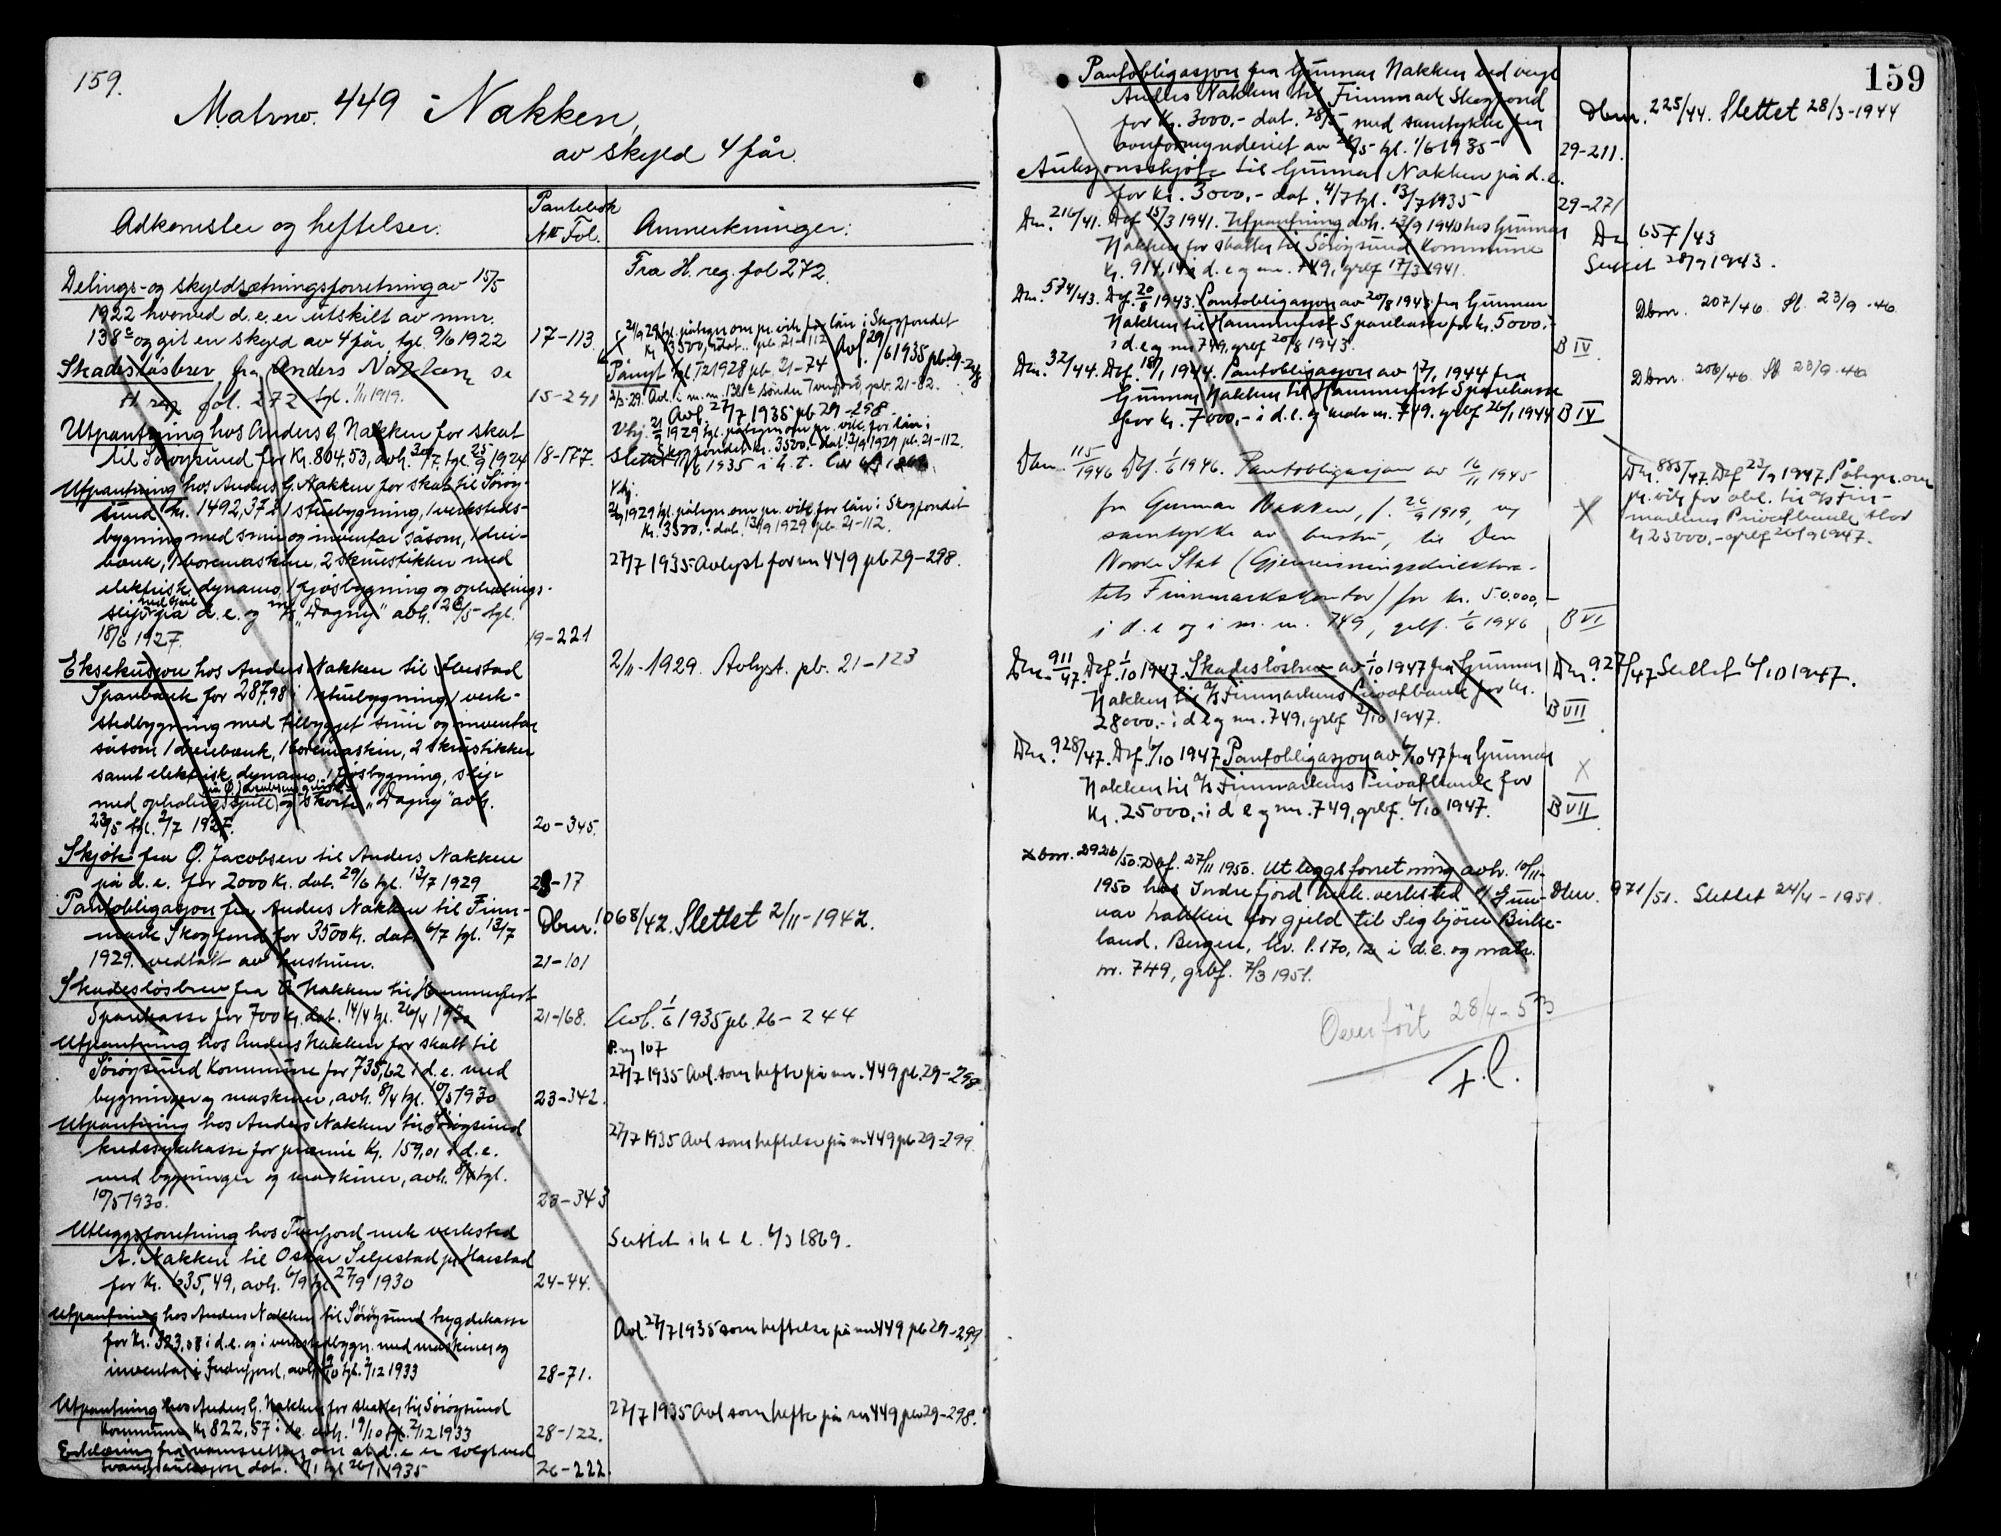 159.
Matrno. 449 Nakken,
av skyld 4 før.
Adkomster og heftelser.
Pantebok
No Fol.
Anmerkninger:
Fra H. reg. fol 272.
Delings- og skyldsætningsforretning av 15/5
1922 hvorved d.e. er utskilt av mnr.
138c og git en skyld av 4 før, tgl. 9/6 1922
17-113.
Skadesløsbrev fra Anders Nakken, se
H reg fol. 272 tgl. 1/11 1919.
15-241
21/9 29 tgl. påtegn om pr. vik. for lån i Skogfondet
Kr. 3500, pb. 21-112
Avl. 27/7 1935 pb 29-298
1929 tgl. påtegn om pr. vik. for lån i
Skogfondet Kr. 3500,- dat. 13/9 1929 pb. 21-112.
Utpantning hos Anders G Nakken for skat
til Sørøysund for Kr. 804,53, avh. 30/7, tgl. 25/9 1924
18-177.
Utpantning hos Anders G. Nakken for skat til Sørøy-
sund Kr. 1492,37 i 1 stuebygning, 1 verksteds-
bygning med smie og inventar såsom, 1 drei-
bænk, 1 boremaskine, 2 skruestikker med
elektrisk dynamo, 1 fjøsbygning og ophalings-
slip på d.e. og "Dagny" avh. 28/5 tgl.
18/6 1927.
19-221
Vbj.
21/9 1929 tgl. påtegn. om pr. vik. for lån i Skogfondet
Kr. 3500,- dat. 13/9 1929 pb. 21-112.
27/7 1935 Avlyst for mn 449 pb 29-298.
Eksekusjon hos Anders Nakken til Ibestad
Sparebank for 287,98 i 1 stuebygning, 1 verk-
stedbygning med tilbygget smie og inventar
såsom 1 dreiebænk, 1 boremaskin, 2 skrustikker
samt elektrisk dynamo, 1 fjøsbygning, slip
med ophalingsspill og skøite "Dagny" avh.
23/5 tgl. 2/7 1927.
20-345.
2/11-1929. Avlyst. pb. 21-123
Skjøte fra O. Jacobsen til Anders Nakken
på d.e. for 2000 Kr. dat. 29/6 tgl. 13/7 1929
-17
Pantobligasjon fra Anders Nakken til Finn-
mark Skogfond for 3500 Kr. dat. 6/7 tgl. 13/7
1929. vedtatt av hustruen.
21-101
Dbnr. 1068/42. Slettet 2/11-1942.
Skadesløsbrev fra A Nakken til Hammerfest
Sparekasse for 700 Kr. dat. 14/4 tgl. 26/4 1930
21-168.
Avl. 1/6 1935 pb. 26-244
Utpantning hos Anders Nakken for skatt til
Sørøysund Kommune for 735,62 i d.e. med
bygninger og maskiner, avh. 8/4 tgl. 10/5 1930
23-342.
P. mg 107
27/7 1935 Avl. som hefte på mn. 449 pb. 29-298.
Utpantning hos Anders Nakken til Sørøysund
kredssykekasse for præmie Kr. 159,01 i d.e.
med bygninger og maskiner, avh. 8/4 tgl.
10/5 1930.
23-343
27/7 1935 Avl som heftelse på mn 449 pb 29-299.
Utleggsforretning hos Tufjord mek verksted
A. Nakken til Oskar Seljestad jr. Harstad
for Kr. 635,49, avh. 6/9 tgl. 27/9 1930
24-44.
Slettet i h t l. 6/3 1869.
Utpantning hos Anders Nakken til Sørøysund trygdekasse
for Kr. 323,08 i d.e. og i verkstedbygn. med maskiner og
inventar i Indrefjord, avh. /10 tgl. 2/12 1933
28-71.
Avl. 27/7 1935 som heftelse på mn 449 pb 29-299
Utpantning hos Anders G. Nakken for skatter til Sørøysund
Kommune Kr 822,57 i d.e. avh. 19/10 tgl. 2/12 1933
28-122.
27/7 1935 Avl som hefte på mn 449 pb 29-298.
Erklæring fra namsretten om at d.e. er solgt ved
tvangsauksjon dat. tgl 26/1 1935
26-222.
159
Pantobligasjon fra Gunnar Nakken ved verge
Anders Nakken til Finnmark Skogfond
for Kr. 3000.- dat. 28/5 med samtykke fra
overformynderiet av /5 tgl. 1/6 1935
29-211.
Dbnr. 225/44. Slettet 28/3-1944
Auksjonsskjøte til Gunnar Nakken på d.e.
for Kr. 3000,- dat. 4/7 tgl. 13/7 1935
29-271
Dnr. 216/41. Dof 15/3 1941. Utpantning avh. 23/9 1940 hos Gunnar
Nakken for skatter til Sørøysund Kommune
Kr. 914,14 i d.e og mn. 749, grbf 17/3 1941.
Dnr. 657/43
Slettet 28/9 1943.
Dnr. 574/43. Dof. 20/8 1943. Pantobligasjon av 20/8 1943 fra Gunnar
Nakken til Hammerfest Sparekasse for kr. 5000.-
i d.e og mn 749, grbf 20/8 1943.
B IV
Dbnr. 207/46 Sl. 23/9-46
Dnr. 32/44. Dof. 18/1 1944. Pantobligasjon av 17/1 1944 fra
Gunnar Nakken til Hammerfest Sparekasse
for kr. 7000,- i d.e. og matr. nr. 749. grbf 26/1 1944
B IV
Dbnr. 206/46 Sl 23/9-46
Dbnr. 115/1946 Dof. 1/6 1946. Pantobligasjon av 16/11 1945
fra Gunnar Nakken, f. 26/9 1919, m
samtykke av hustru, til Den
Norske Stat (Gjenreisningsdirektora-
tets Finnmarkskontor) for kr. 50.000,-
i d.e og i m. n. 749, grbf. 1/6 1946
B VI
X
Dnr. 885/47. Dof 23/9 1947. Påtegn. om
pr. vik for obl. til A/S Finn-
markens Privatbank stor
kr 25000.- grbf 26/9 1947.
Dnr. 911/47. Dof. 1/10 1947. Skadesløsbrev av 1/10 1947 fra Gunnar
Nakken til A/S Finmarkens Privatbank for kr.
28000.- i d e og mn. 749, grbf 2/10 1947.
B VII
Dnr. 927/47 Slettet 6/10 1947.
Dnr. 928/47. Dof. 6/10 1947 Pantobligasjon av 6/10 47 fra Gunnar
Nakken til A/S Finmarkens Privatbank for
Kr. 25000,- i d e og mn. 749, grbf. 6/10 1947.
X
B VII
Dbnr. 2926/50. Dof. 27/11 1950. Utleggsforretning avh. 10/11-
1950 hos Indrefjord mek. verksted v/ Gun-
nar Nakken for gjeld til Segbjørn Birke-
land, Bergen, kr. 8.170,12 i d.e. og matr.
nr. 749, grbf. 7/3 1951.
Dbnr. 971/51. Slettet 24/4-1951.
Overført 28/4-53